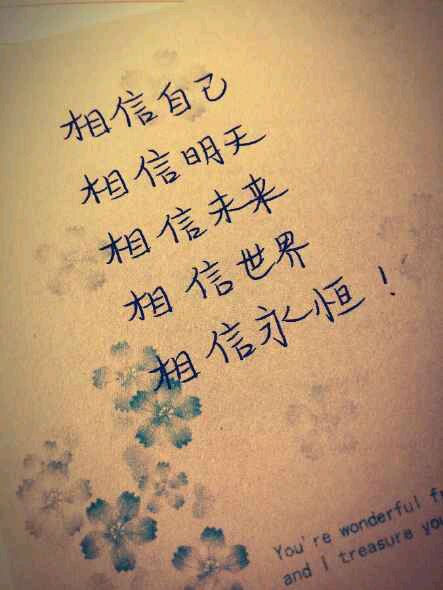 相信自己
相信明天
相信未来
相信世界
相信永恒！
You're wonderful
and I treasure